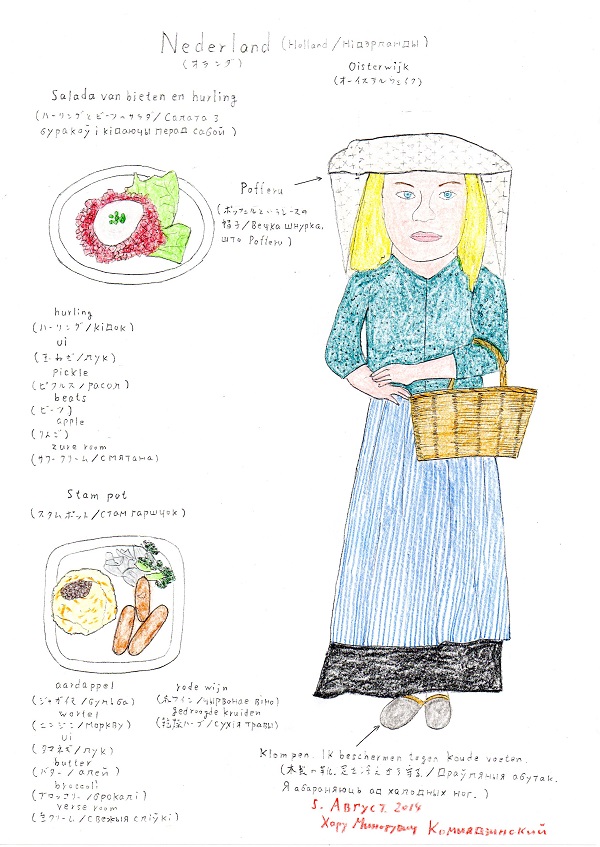 Nederland (Holland/Нідэрланды)
(オランダ)
Oisterwijk
(オーイステルウェイク)
Salada van bieten en hurling
(ハーリングとビーツのサラダ/Салата з
буракоў і кідаючы перад сабой)
Pofferu
(ポッフェルというレースの
帽子/Вечка шнурка,
што Pofferu)
hurling
(ハーリング/кідок)
ui
(玉ねぎ/лук)
pickle
(ピクルス/расол)
beats
(ビーツ)
apple
(りんご)
zure room
(サワークリーム/смятана)
Stam pot
(スタムポット/Стам гаршчок)
aardappel
(ジャガイモ/бульба)
wortel
(ニンジン/моркву)
ui
(タマネギ/лук)
butter
(バター/алей)
broccoli
(ブロッコリー/брокалі)
verse room
(生クリーム/Свежыя сліўкі)
rode wijn
(赤ワイン/чырвонае віно)
gedroogde kruiden
(乾燥ハーブ/Сухія травы)
Klompen. Ik beschermen tegen koude voeten.
(木製の靴。足を冷えから守る/Драўляныя абутак.
Я абараняюць ад халодных ног.)
5. Август. 2014
Хару